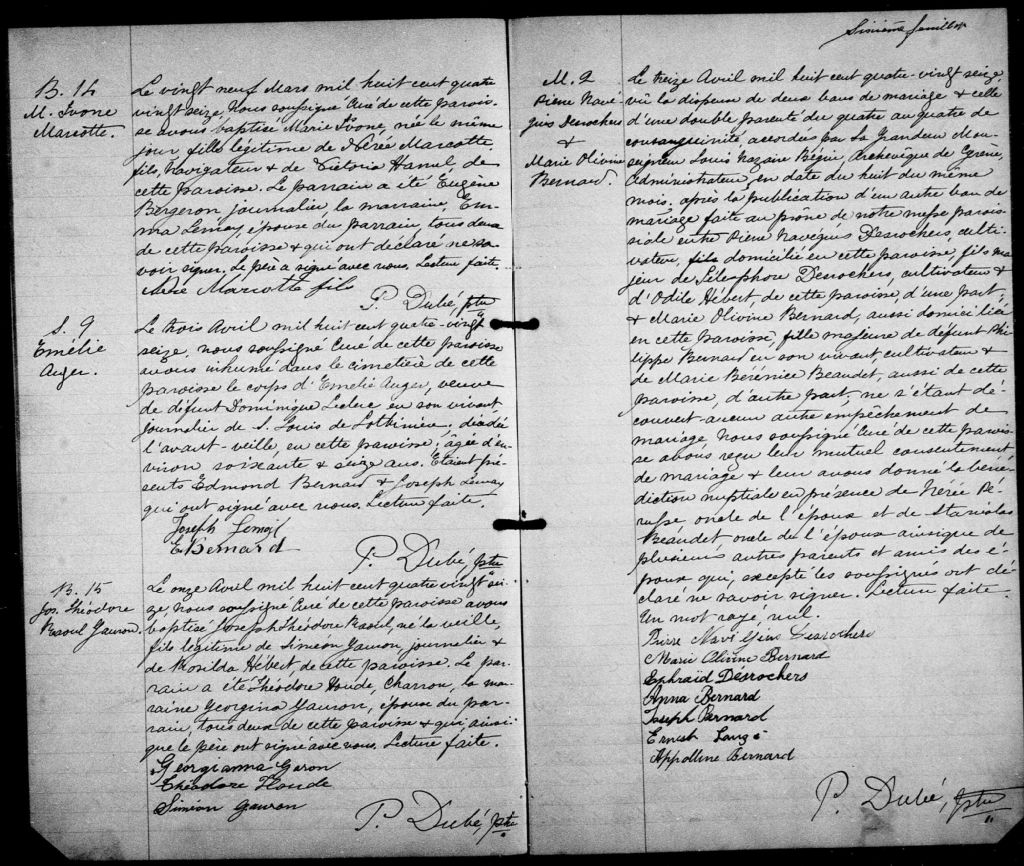 B. 14
M. Ivone
Marcotte.
Le vingt neuf Mars mil huit cent quatre
vingt seize, Nous soussigné Curé de cette parois-
se avons baptisé Marie Ivone, née le même
jour fille légitime de Nérée Marcotte,
fils, Navigateur & de Victoria Hamel, de
cette paroisse. Le parrain a été Eugène
Bergeron journalier, la marraine, Em-
ma Lemay, épouse du parrain, tous deux
de cette paroisse & qui ont déclaré ne sa-
voir signer. Le père a signé avec nous. Lecture faite.
Néré Marcotte fils
P. Dubé, ptre
S. 9
Emélie
Auger.
Le trois Avril mil huit cent quatre-vingt
seize, nous soussigné Curé de cette paroisse
avons inhumé dans le cimetière de cette
paroisse le corps d'Emélie Auger, veuve
de défunt Dominique Leclerc en son vivant
journalier de S. Louis de Lotbinière, décédée
l'avant-veille, en cette paroisse, âgée d'en-
viron soixante & seize ans. Etaient pré-
sents Edmond Bernard & Joseph Lemay
qui ont signé avec nous. Lecture faite.
Joseph Lemay
E Bernard
P. Dubé, ptre
B. 15
Jos. Théodore
Raoul Gauron.
Le onze Avril mil huit cent quatre vingt sei-
ze, nous soussigné Curé de cette paroisse avons
baptisé Joseph Théodore Raoul, né la veille,
fils légitime de Siméon Gauron journalier &
de Rosilda Hébert, de cette paroisse. Le par-
rain a été Théodore Houde, Charron, la ma-
raine Georgina Gauron, épouse du par-
rain, tous deux de cette paroisse & qui ainsi
que le père ont signé avec nous. Lecture faite.
Georgianna Garon
Théodore Houde
Siméon Gauron
P. Dubé, ptre
Sixième feuillet
M. 2
Pierre Navé-
guis Desrochers
&
Marie Olivine
Bernard.
Le treize Avril mil huit cent quatre-vingt seize,
vû la dispense de deux bans de mariage & celle
d'une double parenté du quatre au quatre de
consanguinité accordés par Sa Grandeur Mon-
seigneur Louis Nazaire Bégin, Archevêque de Cyrène,
Administrateur, en date du huit du même
mois, après la publication d'un autre ban de
mariage faite au prône de notre messe parois-
siale entre Pierre Navéguis Desrochers, culti-
vateur, fils domicilié en cette paroisse, fils ma-
jeur de Télesphore Desrochers, cultivateur &
d'Odile Hébert, de cette paroisse, d'une part;
& Marie Olivine Bernard, aussi domiciliée
en cette paroisse, fille majeure de défunt Phi-
lippe Bernard en son vivant, cultivateur &
de Marie Bérénice Beaudet, aussi de cette
paroisse, d'autre part; ne s'étant dé-
couvert aucun autre empêchement de
mariage, Nous soussigné Curé de cette parois-
se avons reçu leur mutuel consentement
de mariage & leur avons donné la béné-
diction nuptiale en présence de Nérée Pé-
russe oncle de l'époux et de Stanislas
Beaudet oncle de l'épouse ainsi que de
plusieurs autres parents et amis des é-
poux qui, excepté les soussignés ont dé-
claré ne savoir signer. Lecture faite.
Un mot rayé nul.
Pierre Desrochers
Marie Olivine Bernard
Ephraid Désrochers
Anna Bernard
Joseph Bernard
Ernest
Appolline Bernard
P. Dubé, ptre